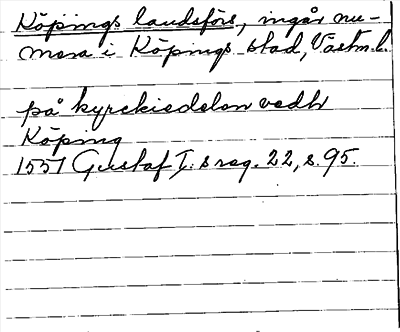 Köpings landsförs, ingår nu-
mera i Köpings stad, Västm.l.
på kyrckiedelen vedh
Köping
1551 Gustaf I:s reg. 22, s. 95.